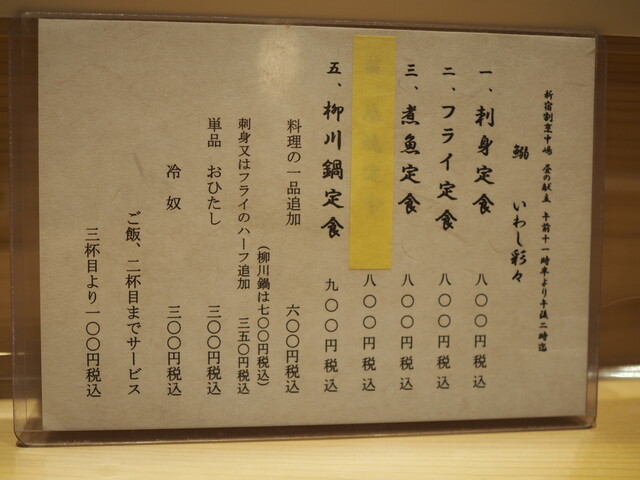 新宿割烹中嶋　昼の献立　午前十一時半より午後二時迄
鰯　いわし彩々
一、刺身定食　八〇〇円税込
二、フライ定食　八〇〇円税込
三、煮魚定食　八〇〇円税込
八〇〇円税込
五、柳川鍋定食　九〇〇円税込
料理の一品追加　六〇〇円税込
（柳川鍋は七〇〇円税込）
刺身又はフライのハーフ追加　三五〇円税込
単品　おひたし　三〇〇円税込
冷奴　三〇〇円税込
ご飯、二杯目までサービス
三杯目より一〇〇円税込